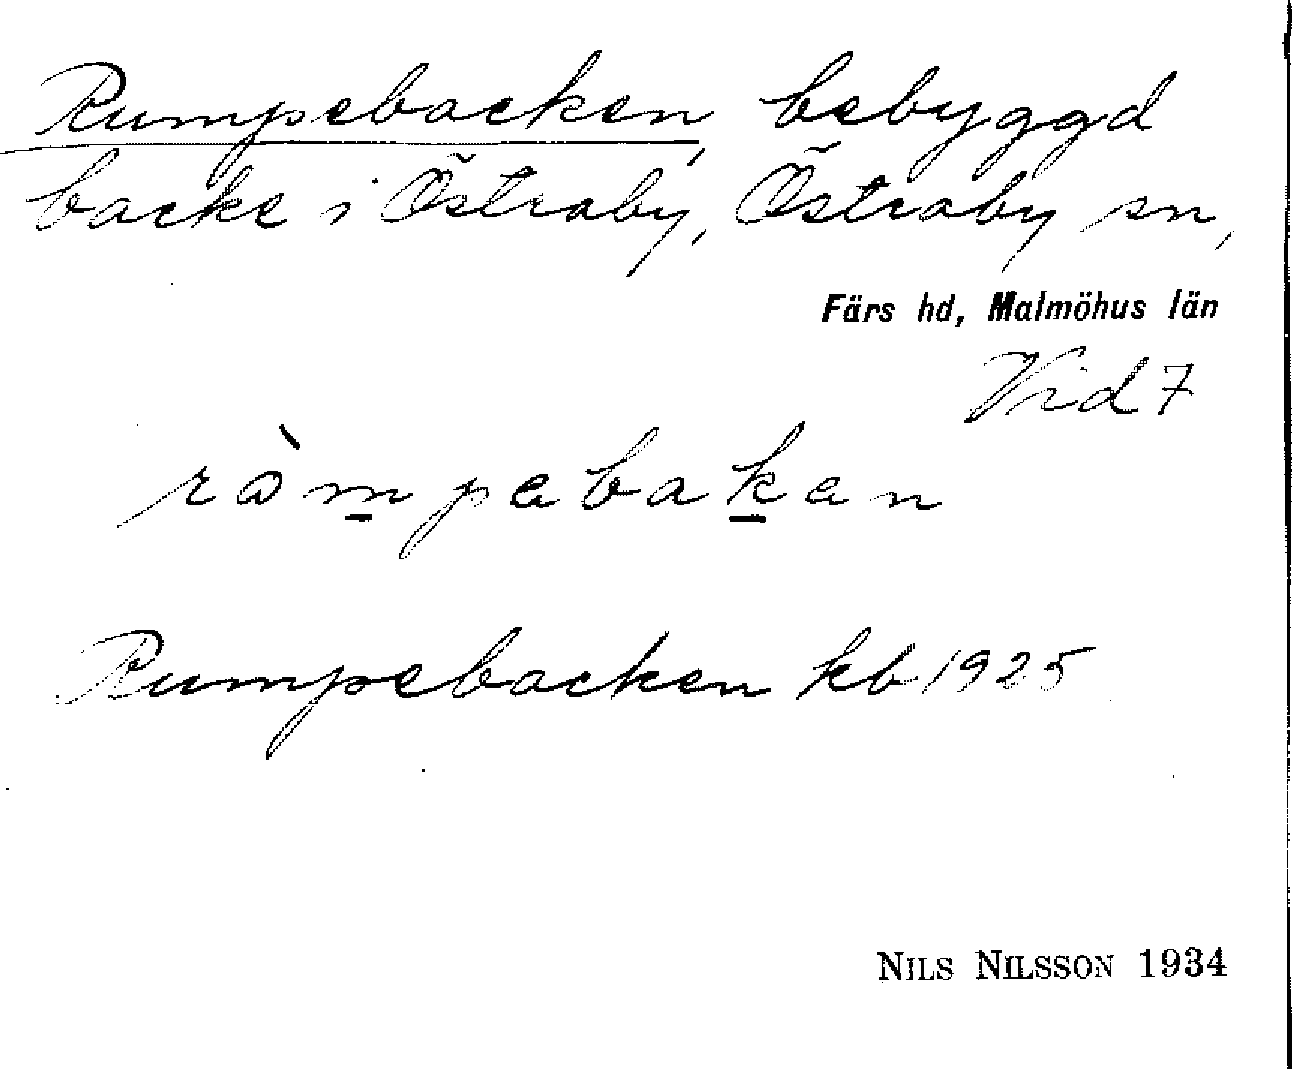 Rumpebacken, bebyggd
backe i Östraby, Östraby sn,
Färs hd, Malmöhus län
Vid 7
ròm̲pəbak̲ən
Rumpebacken kb 1925
NILS NILSSON 1934